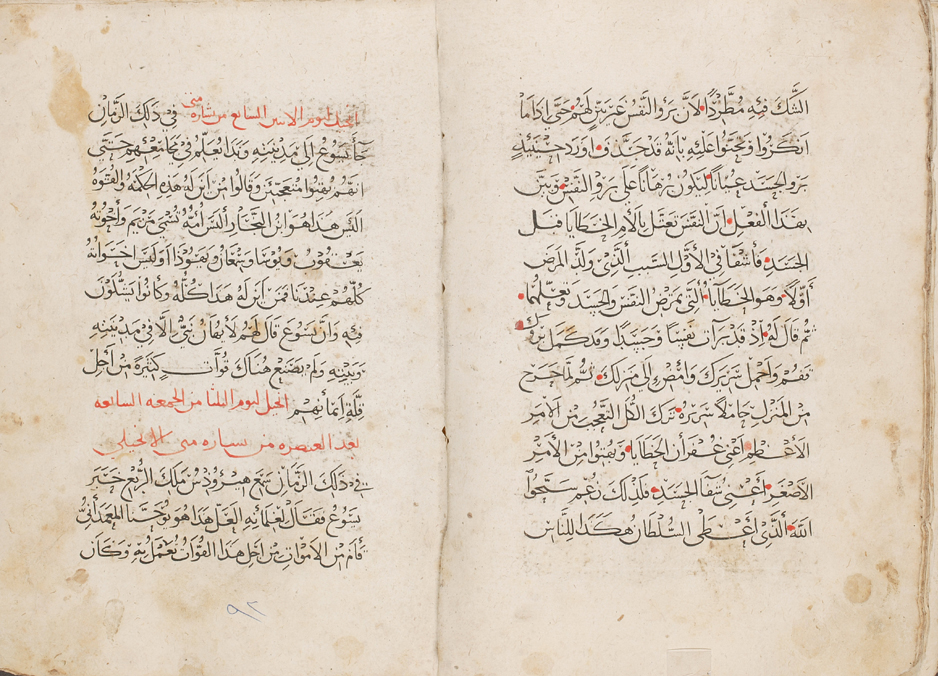 الشَّك فيه مُطَّرِدًا لأنَّ بَرَو النَّفْس غَير بَيّن لهُم حَتي اذا ما
انكروا وتحتوا عليه بانهُ قد جَدَّف اورد حينيذٍ
برو الجسَد عيانًا ليَكون بُرهانًا علي برو النفس وبَيّن
بهَذا الفعل انّ النفس تعتَل بآلام الخطايا قبل
الجسَد فاشفا في الأوّل السَبب الذي ولد المَرض
أوّلًا وهو الخطايا التي تمرض النفس والجسَد وتعلهما
ثم قال لهُ اذ قد بَرات نفسًا وجسَدًا وقد كمل بروك
فقُم واحمل سَريرك وامض إلي منزلك ثم لما خرج
من المنزل حاملًا سَريره ترك الكل التعجب من الامر
الاعظم اعني غفران الخطايا وبهتوا من الأمر
الاصغر اعني شفا الجسَد فلذلك زعم سَبّحوا
الله الذي أعطي السُلطان هكذا للنّاس
انجيل اليوم الاثنين السابع من بشاره متي في ذلك الزمان
جا يسوع إلي مدينته وبدا يعلّم في مجامعهم حتي
انهم بهتوا متعجبين وقالوا من اين لهُ هذه الحكمه والقوه
اليسَ هَذا هُو ابن النجّار أليسَ أمّهُ تُسَمي مَريَم وأخوتهُ
يعقوب ويُوسَا وسمعَان ويهوذا اوليسَ اخواتهُ
كلهُم عندنا فمن اين لهُ هذا كلّه وكانوا يشكون
فيه وان يسوع قال لهُم لا يهان نبيّ الّا في مدينته
وبيته ولم يصنع هناك قوات كثيرة من اجل
قلة ايمانهم انجيل اليوم الثلثا من الجمعه السابعه
بعد العنصره من بشاره متي الانجيلي
في ذلك الزمان سَمع هيرُودُس ملك الرّبع خَبر
يسوع فقال لغلمانهِ لعَلّ هذا هو يوحنا المعمداني
قام من الاموات من اجل هذا القوات تعمل به وكان
٩٢